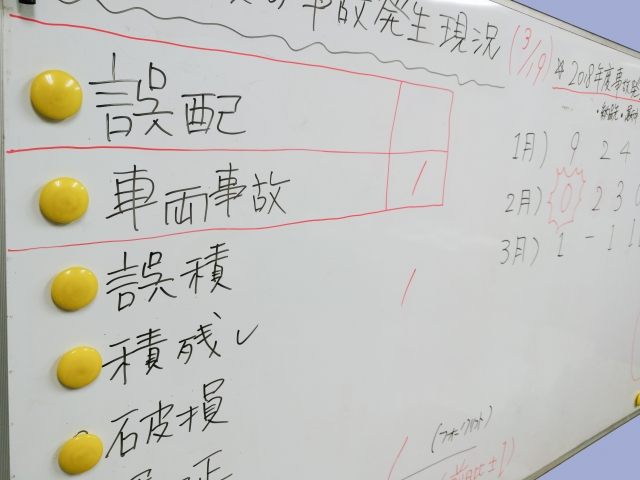 事故発生現況 (3/19)
※2018年度事故発
誤配
車両事故 /
誤積 /
積残し
破損
1月) 9 2 4
2月) 0 2 3 0
3月) 1 - 1 1
(フォークリフト)
/ (前日比±1)